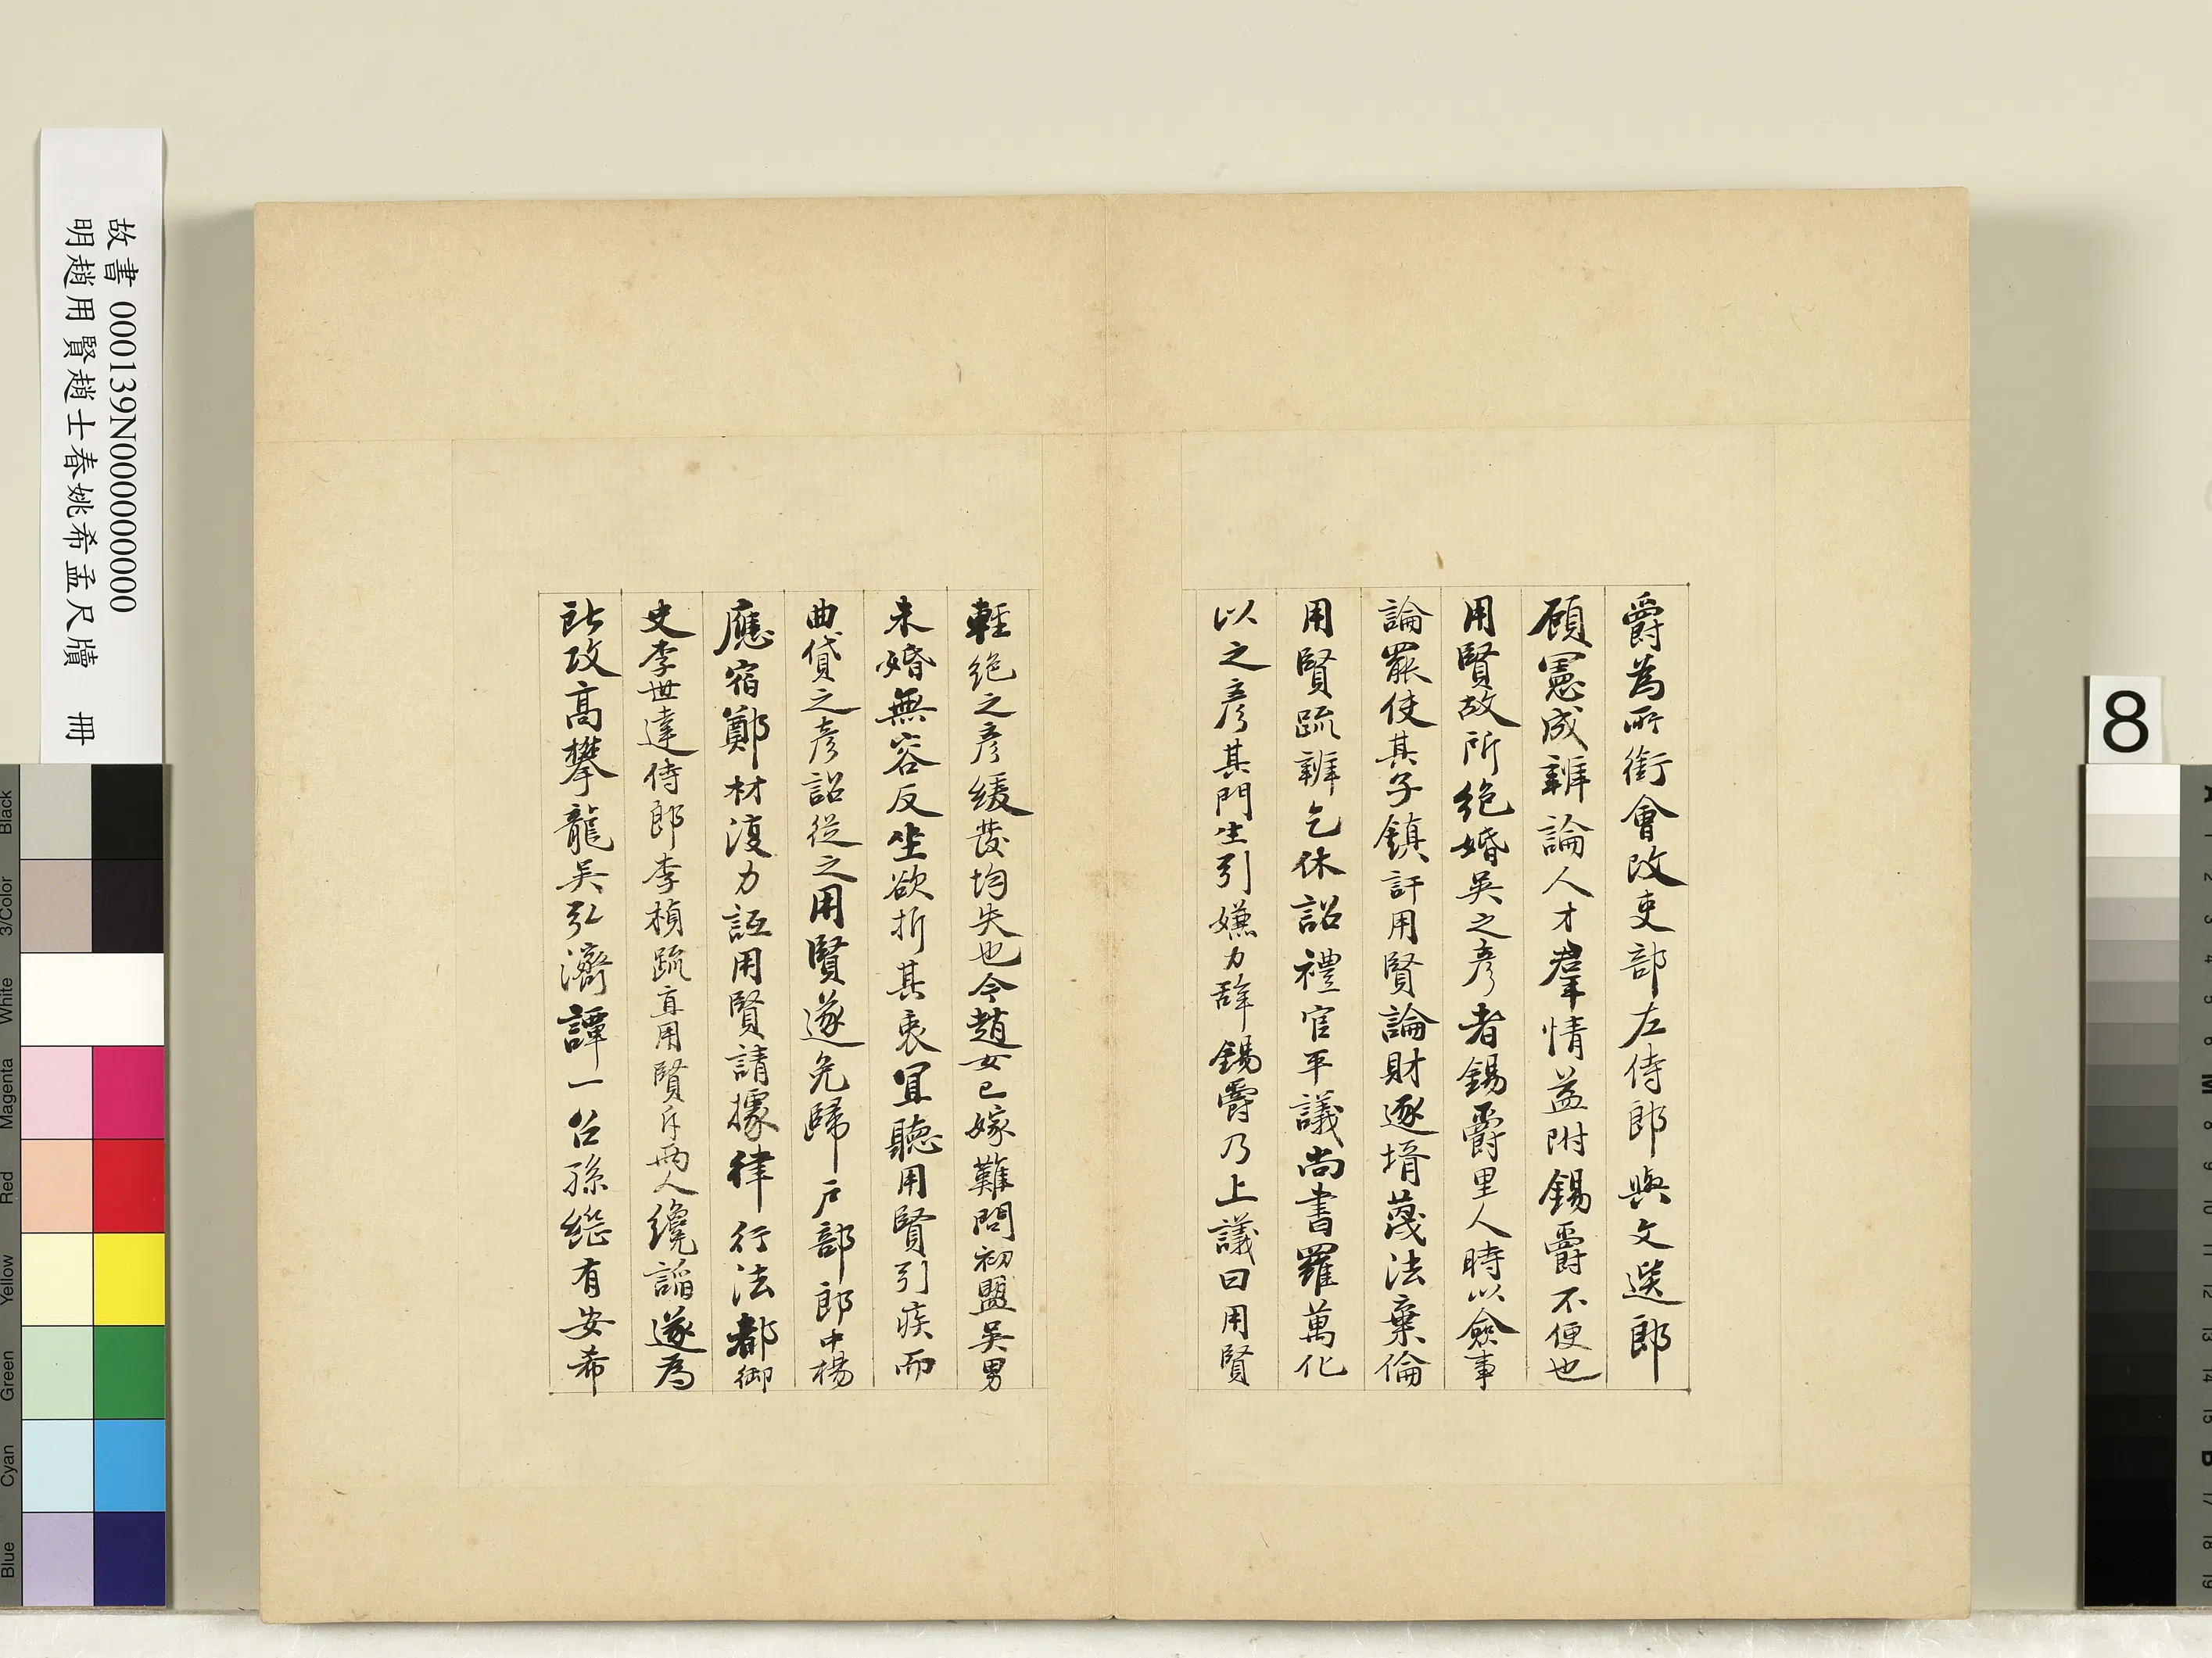 爵為所銜會改吏部左侍郎與文選郎
顧憲成辨論人才羣情益附錫爵不便也
用賢故所絶婚吳之彥者錫爵里人時以僉事
論罷使其子鎮訐用賢論財逐壻蔑法棄倫
用賢疏辨乞休詔禮官平議尚書羅萬化
以之彥其門生引嫌力辭錫爵乃上議曰用賢
輕絶之彥緩發均失也今趙女已嫁難問初盟吳男
未婚無容反坐欲折其衷宜聽用賢引疾而
曲貸之彥詔從之用賢遂免歸戶部郎中楊
應宿鄭材復力詆用賢請據律行法都御
史李世達侍郎李楨疏直用賢斥兩人讒諂遂為
所攻高攀龍吳弘濟譚一召孫繼有安希
故書 000139N000000000
明趙用賢趙士春姚希孟尺牘 冊
8
Black
3/Color
White
Magenta
Red
Yellow
Green
Cyan
Blue
A 1 2 3 4 5 6 M 8 9 10 11 12 13 14 15 B 17 18 19